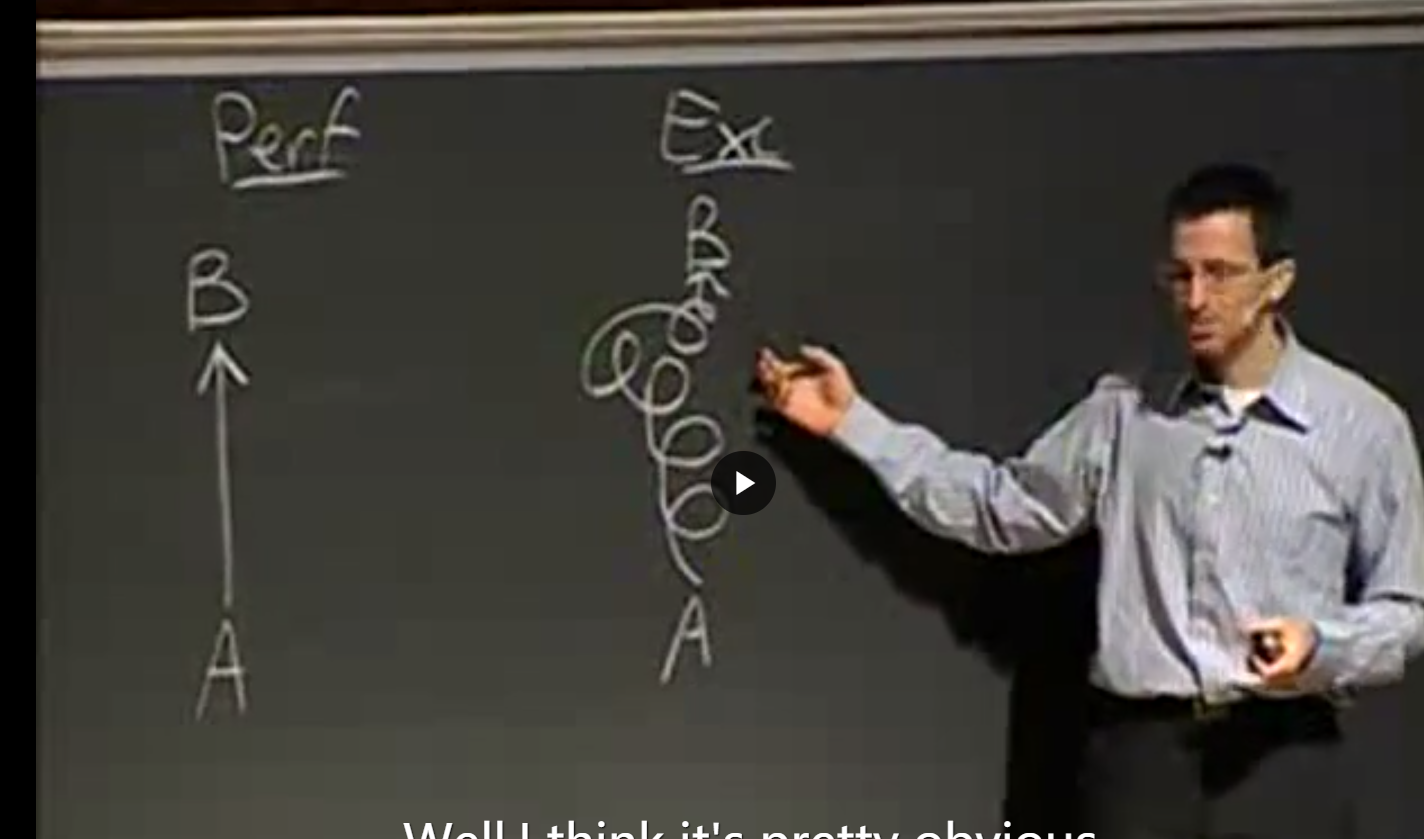 Perf
B
A
Exc
B
A
Well I think it's pretty obvious